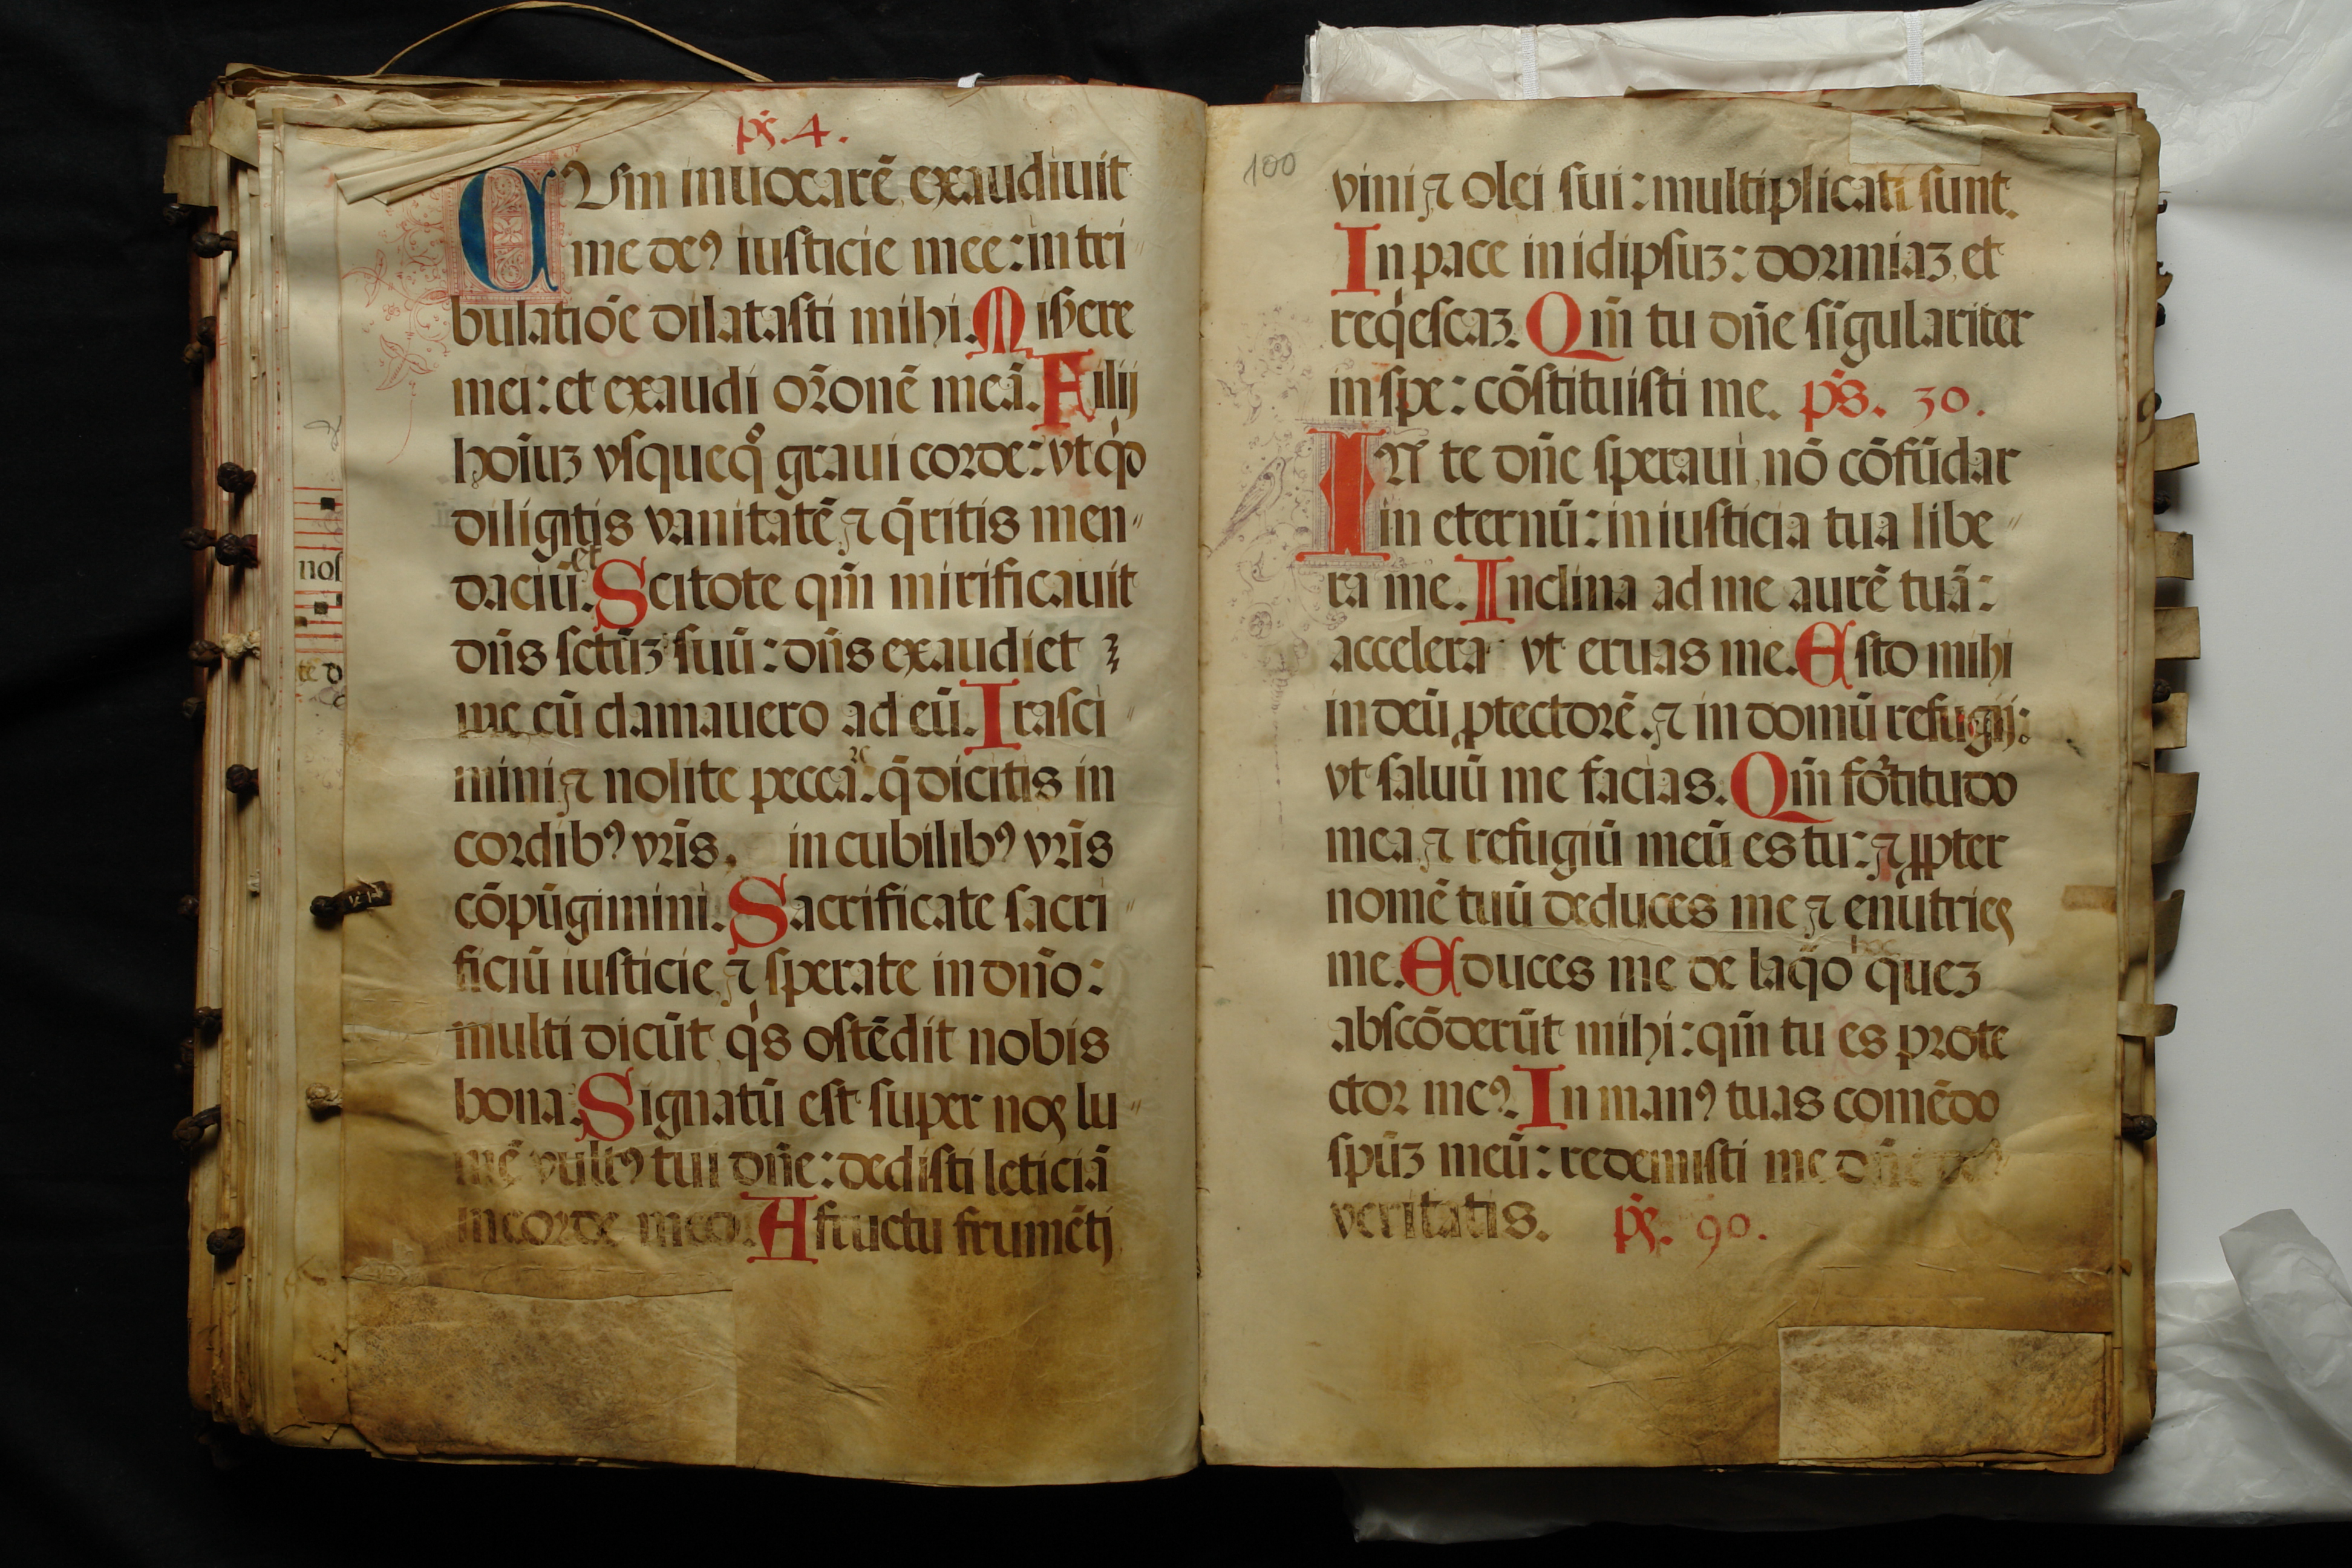 pš. 4.
CUm inuocarē exaudiuit
me deꝰ iusticie mee: in tri〃
bulatiōe dilatasti mihi. Misere
mei: et exaudi orōnē meā. Filij
hoīuʒ vsquequo graui corde: vt qd
diligitis vanitatē ⁊ q̄ritis men〃
daciū. et Scitote qm̄ mirificauit
dn̄s sctūʒ suū: dn̄s exaudiet
me cū clamauero ad eū. Irasci〃
mini ⁊ nolite peccā. q̄ dicitis in
cordibꝰ vr̄is, in cubilibꝰ vr̄is
cōpūgimini. Sacrificate sacri〃
ficiū iusticie ⁊ sperate in dn̄o:
multi dicūt qis ostēdit nobis
bona. Signatū est super nos lu〃
mē vultꝰ tui dn̄e: dedisti leticiā
in corde meo. A fructu frumēti
100
vini ⁊ olei sui: multiplicati sunt.
In pace in idipsuʒ: dormiaʒ et
reqiescaʒ. Qm̄ tu dn̄e sīgulariter
in spe: cōstituisti me. ps̄. 30.
IN te dn̄e speraui nō cōfūdar
in eternū: in iusticia tua libe〃
ra me. Inclina ad me aurē tuā:
accelera vt eruas me. Esto mihi
in deū ꝓtectorē. ⁊ in domū refugij:
vt saluū me facias. Qm̄ fortitudo
mea ⁊ refugiū meū es tu: ⁊ ꝓpter
nomē tuū deduces me ⁊ enūtries
me. Educes me de laq̄o hoc queʒ
abscōderūt mihi: qm̄ tu es prote
ctor meꝰ. In manꝰ tuas comēdo
spūʒ meū: redemisti me dn̄e deꝰ
veritatis. pš. 90.
nos
te d